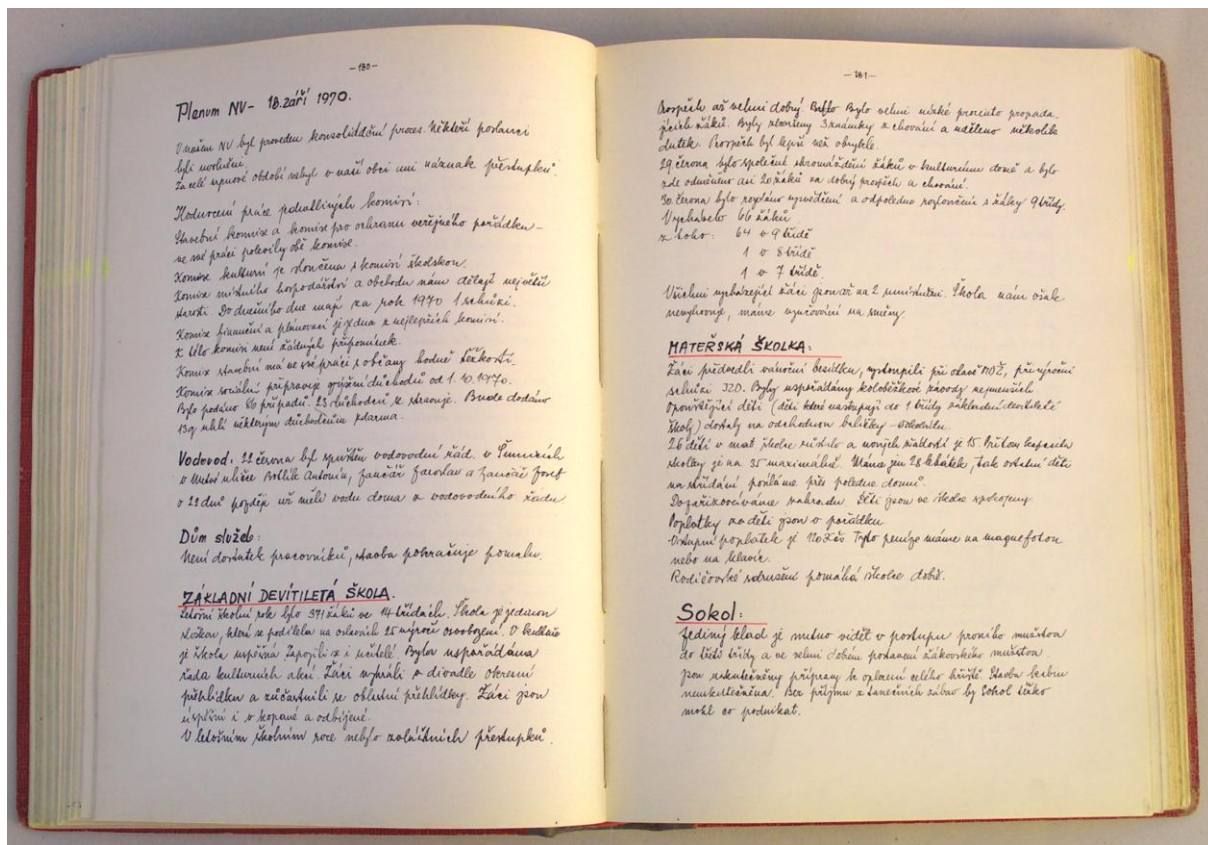 -180-
Plenum NV- 18. září 1970.
V našem NV byl proveden konsolidační proces. Někteří poslanci
byli uvolněni.
Za celé srpnové období nebyl v naší obci ani náznak přestupků.
Hodnocení práce jednotlivých komisí:
Stavební komise a komise pro ochranu veřejného pořádku-
ve své práci polevily obě komise.
Komise kulturní je sloučena s komisí školskou.
Komise místního hospodářství a obchodu nám dělají největší
starosti. Do dnešního dne mají za rok 1970 1 schůzi.
Komise finanční a plánovací je jedna z nejlepších komisí.
K této komisi není žádných připomínek.
Komise stavební má ve své práci s občany hodně těžkostí.
Komise sociální připravuje zvýšení důchodů od 1.10.1970.
Bylo podáno 86 případů. 23 důchodců se stravuje. Bude dodáno
13q uhlí některým důchodcům zdarma.
Vodovod. 22 června byl spuštěn vodovodní řád. v Šumicích
v ulice Antonín, Jančář Jaroslav a Jančář Josef
o 22 dnů později už měli vodu doma z vodovodního řadu
Dům služeb:
Není dostatek pracovníků, stavba pokračuje pomalu.
ZÁKLADNÍ DEVÍTILETÁ ŠKOLA.
Letošní školní rok bylo 371 žáků ve 14 třídách. Škola je jedinou
složkou, která se podílela na oslavách 25 výročí osvobození. V
je škola úspěšná i učitelé Byla uspořádána
řada kulturních akcí. Žáci vyhráli v divadle okresní
přehlídku a zúčastnili se oblastní přehlídky. Žáci jsou
úspěšní i v kopané a odbíjené.
V letošním školním roce nebylo zvláštních přestupků.
-181-
Prospěch až velmi dobrý. Bylo velmi nízké procento propada-
jících žáků. Byly 3 známky z chování a uděleno několik
důtek. Prospěch byl lepší než obvykle.
29 června bylo společné shromáždění žáků v kulturním domě a bylo
zde odměněno asi 20 žáků za dobrý prospěch a chování.
30. června bylo rozdáno vysvědčení a odpoledne rozloučení s žáky 9 třídy.
Vycházelo 66 žáků
z toho: 64 v 9 třídě
1 v 8 třídě
1 v 7 třídě.
Všichni vycházející žáci jsou až na 2 umístněni. Škola nám však
nevyhovuje, máme vyučování na směny.
MATEŘSKÁ ŠKOLKA:
Žáci předvedli vánoční besídku, vystoupili při oslavě MDŽ, při výroční
schůzi JZD. Byly uspořádány koloběžkové závody nejmenších
Opouštějící děti (děti které nastupují do 1 třídy základní devítileté
školy) dostaly na odchodnou balíčky -
26 dětí v mat školce zůstalo a nových žádostí je 15. Přitom kapacita
školky je na 35 maximálně. Máme jen 28 lehátek, tak ostatní děti
na střídání posíláme přes poledne domů.
zahradu. Děti jsou ve školce spokojeny.
Poplatky za děti jsou v pořádku
Vstupní poplatek je 120 Kčs Tyto peníze máme na magnefoton
nebo na klavír.
Rodičovské sdružení pomáhá školce dobře.
Sokol:
Jediný klad je nutno vidět v postupu prvního mužstva
do třetí třídy a ve velmi dobém postavení žákovského mužstva.
Jsou uskutečněny přípravy k oplocení celého hřiště. Stavba kabin
neuskutečněna. Bez příjmu z tanečních zábav by Sokol těžko
mohl co podnikat.